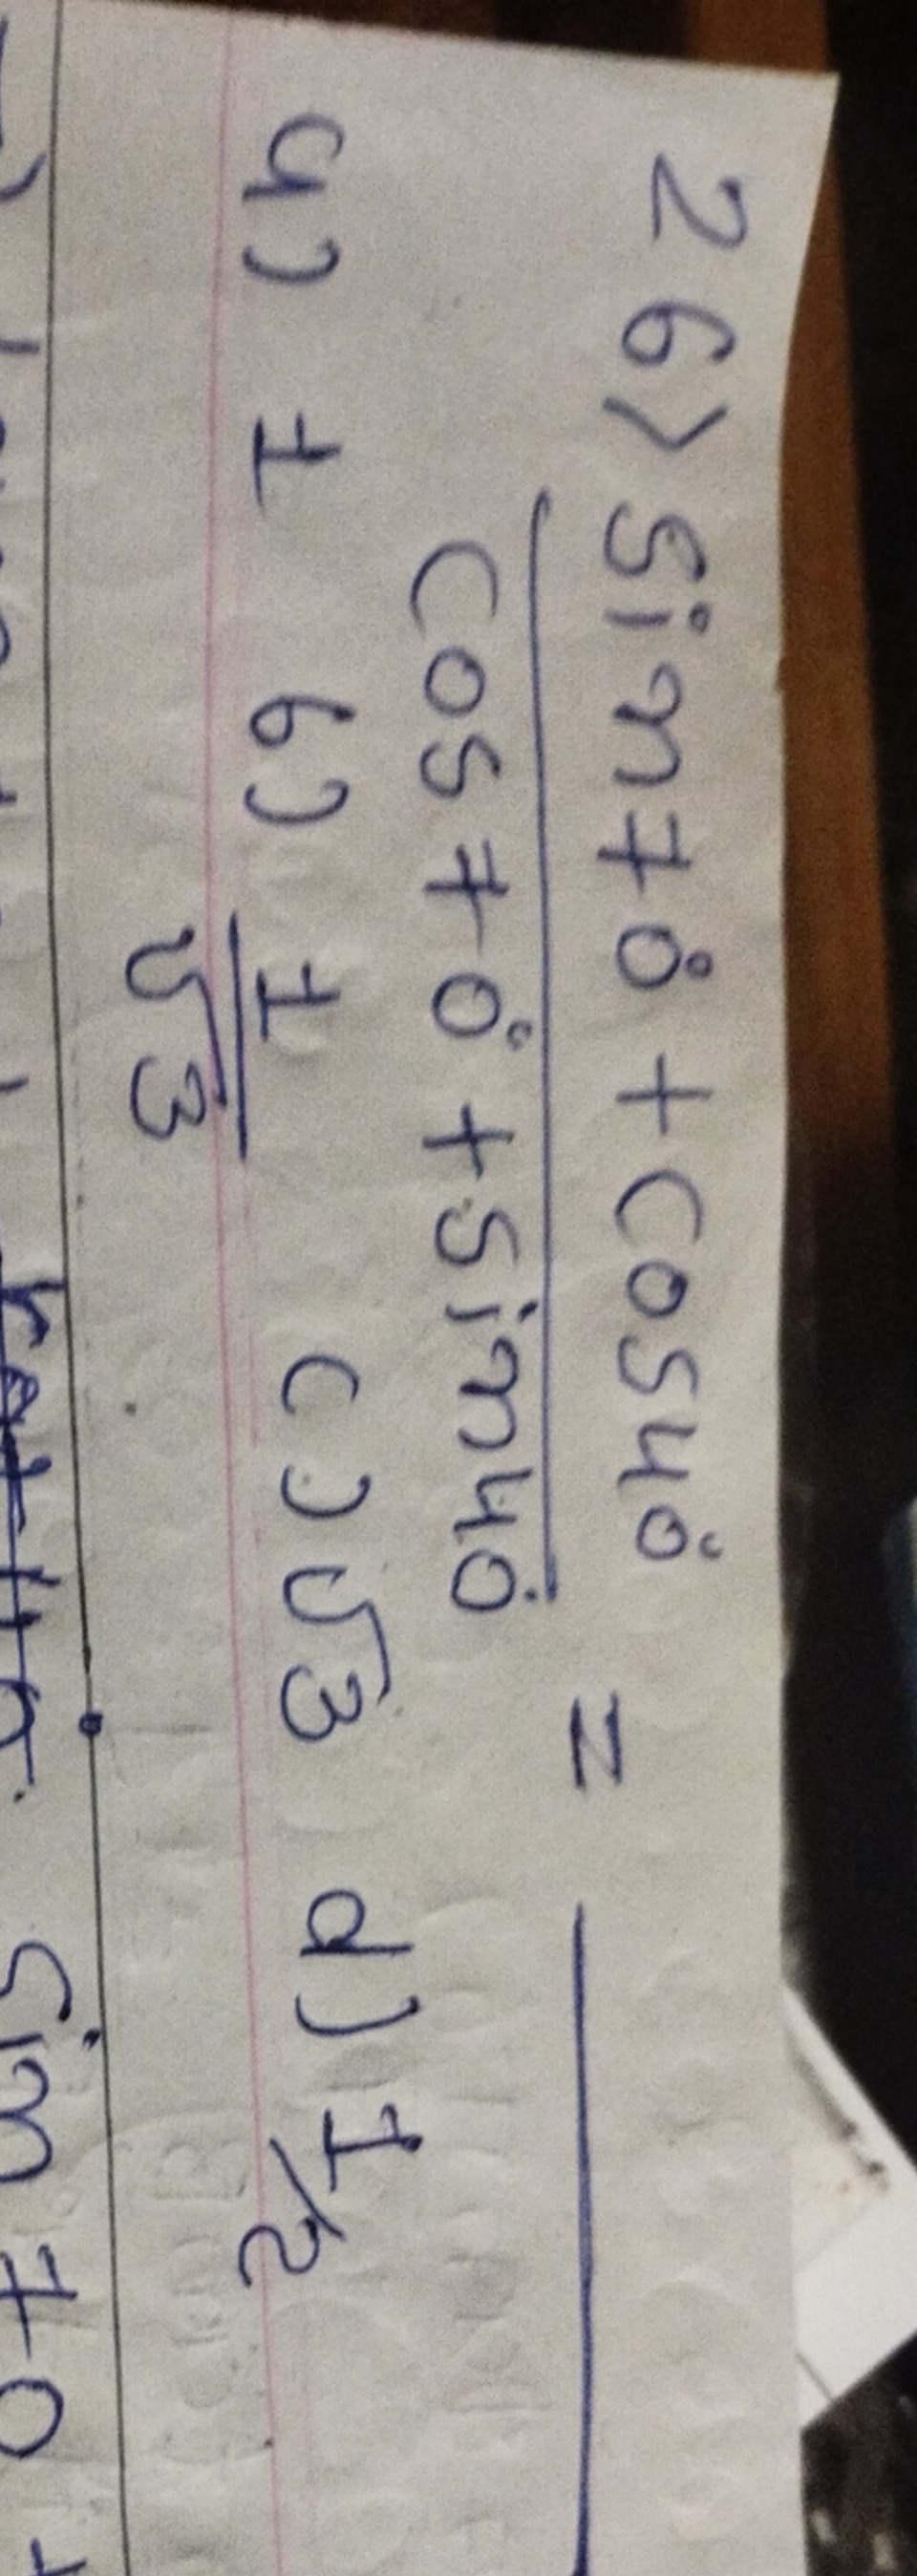 26) Sin 70° + cos 40°
cos 70° + Sin 40° = ____
a) 1 b) 1/√3 c) √3 d) 1/2
Sin 70